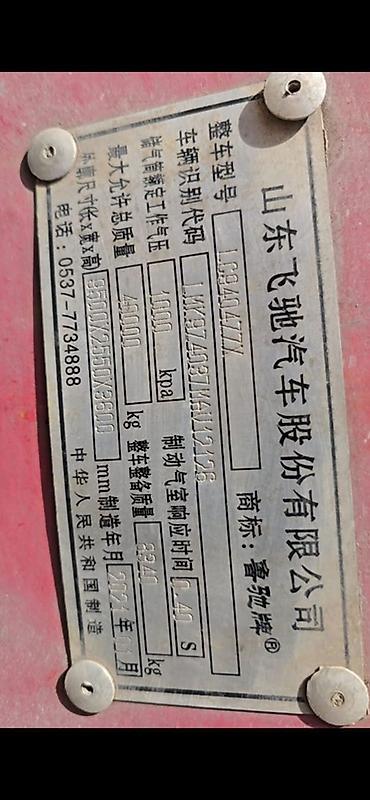 山东飞驰汽车股份有限公司
整车型号 商标:鲁驰牌®
车辆识别代码
储气筒额定工作气压 1000 kpa 制动气室响应时间 0.40 S
最大允许总质量 kg 整车整备质量 kg
外廓尺寸(长x宽x高) mm 制造年月 2021年 月
电话:0537-7734888 中华人民共和国制造